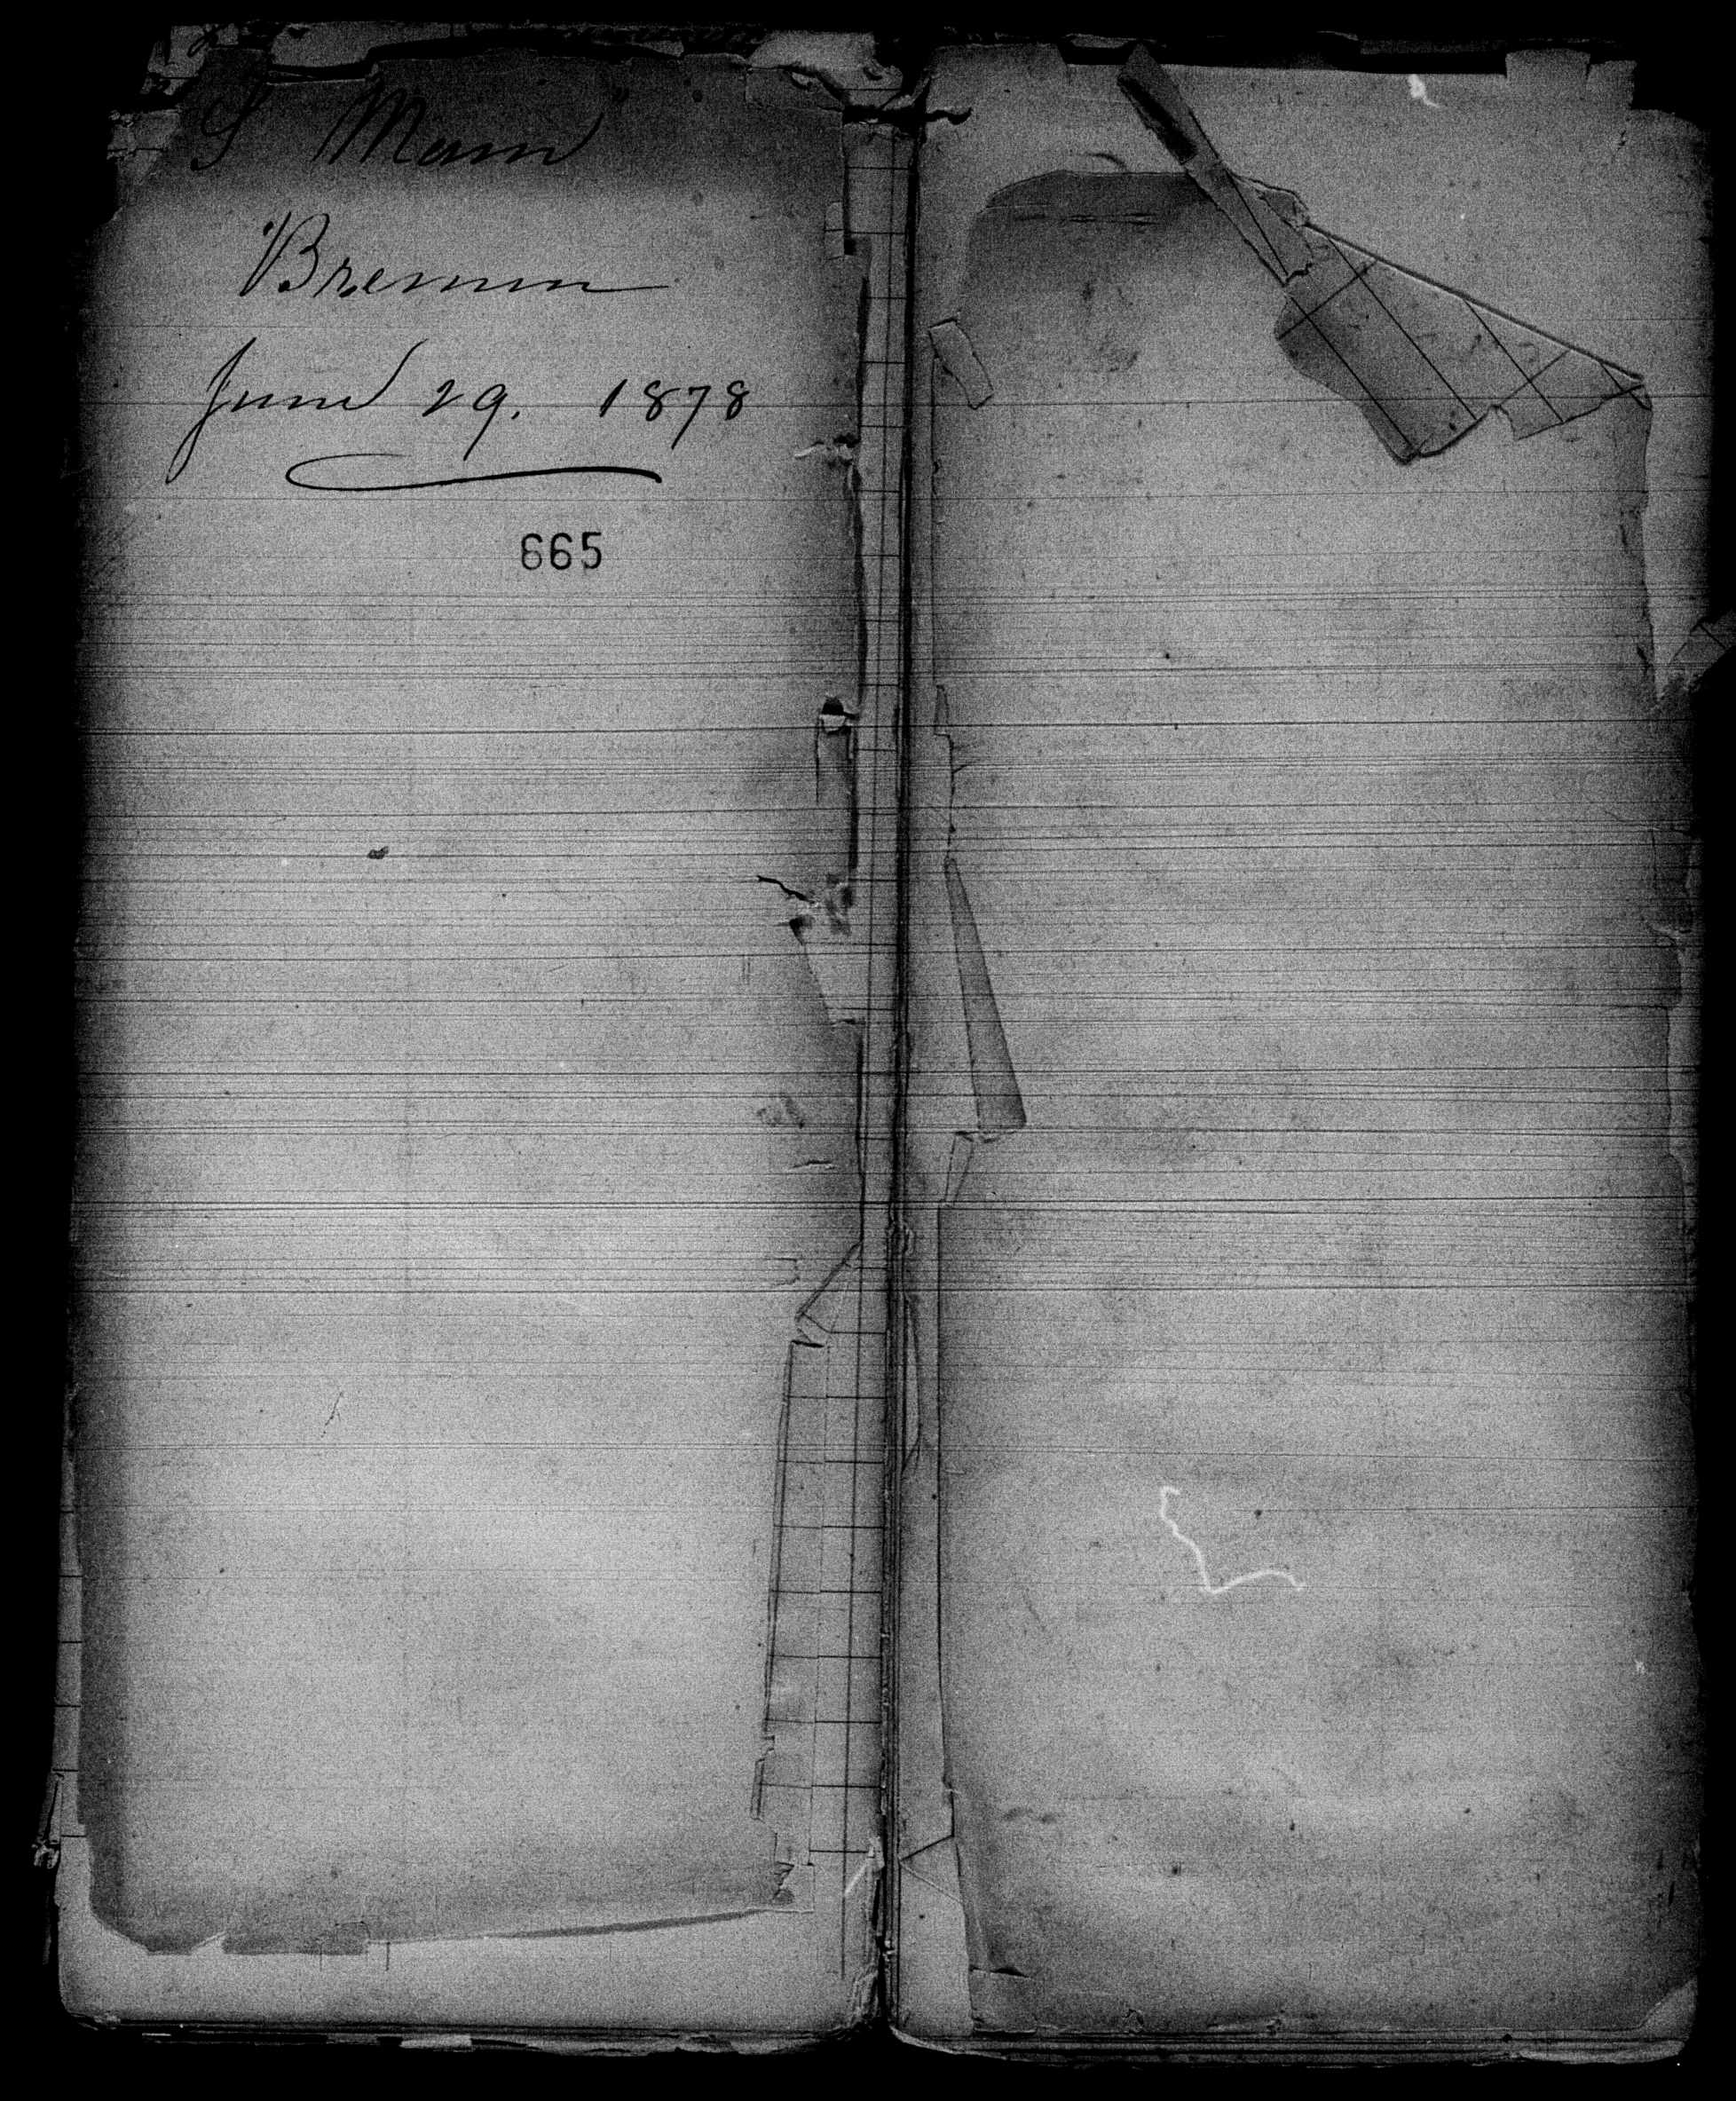 S Main
Bremen
June 29. 1878
665